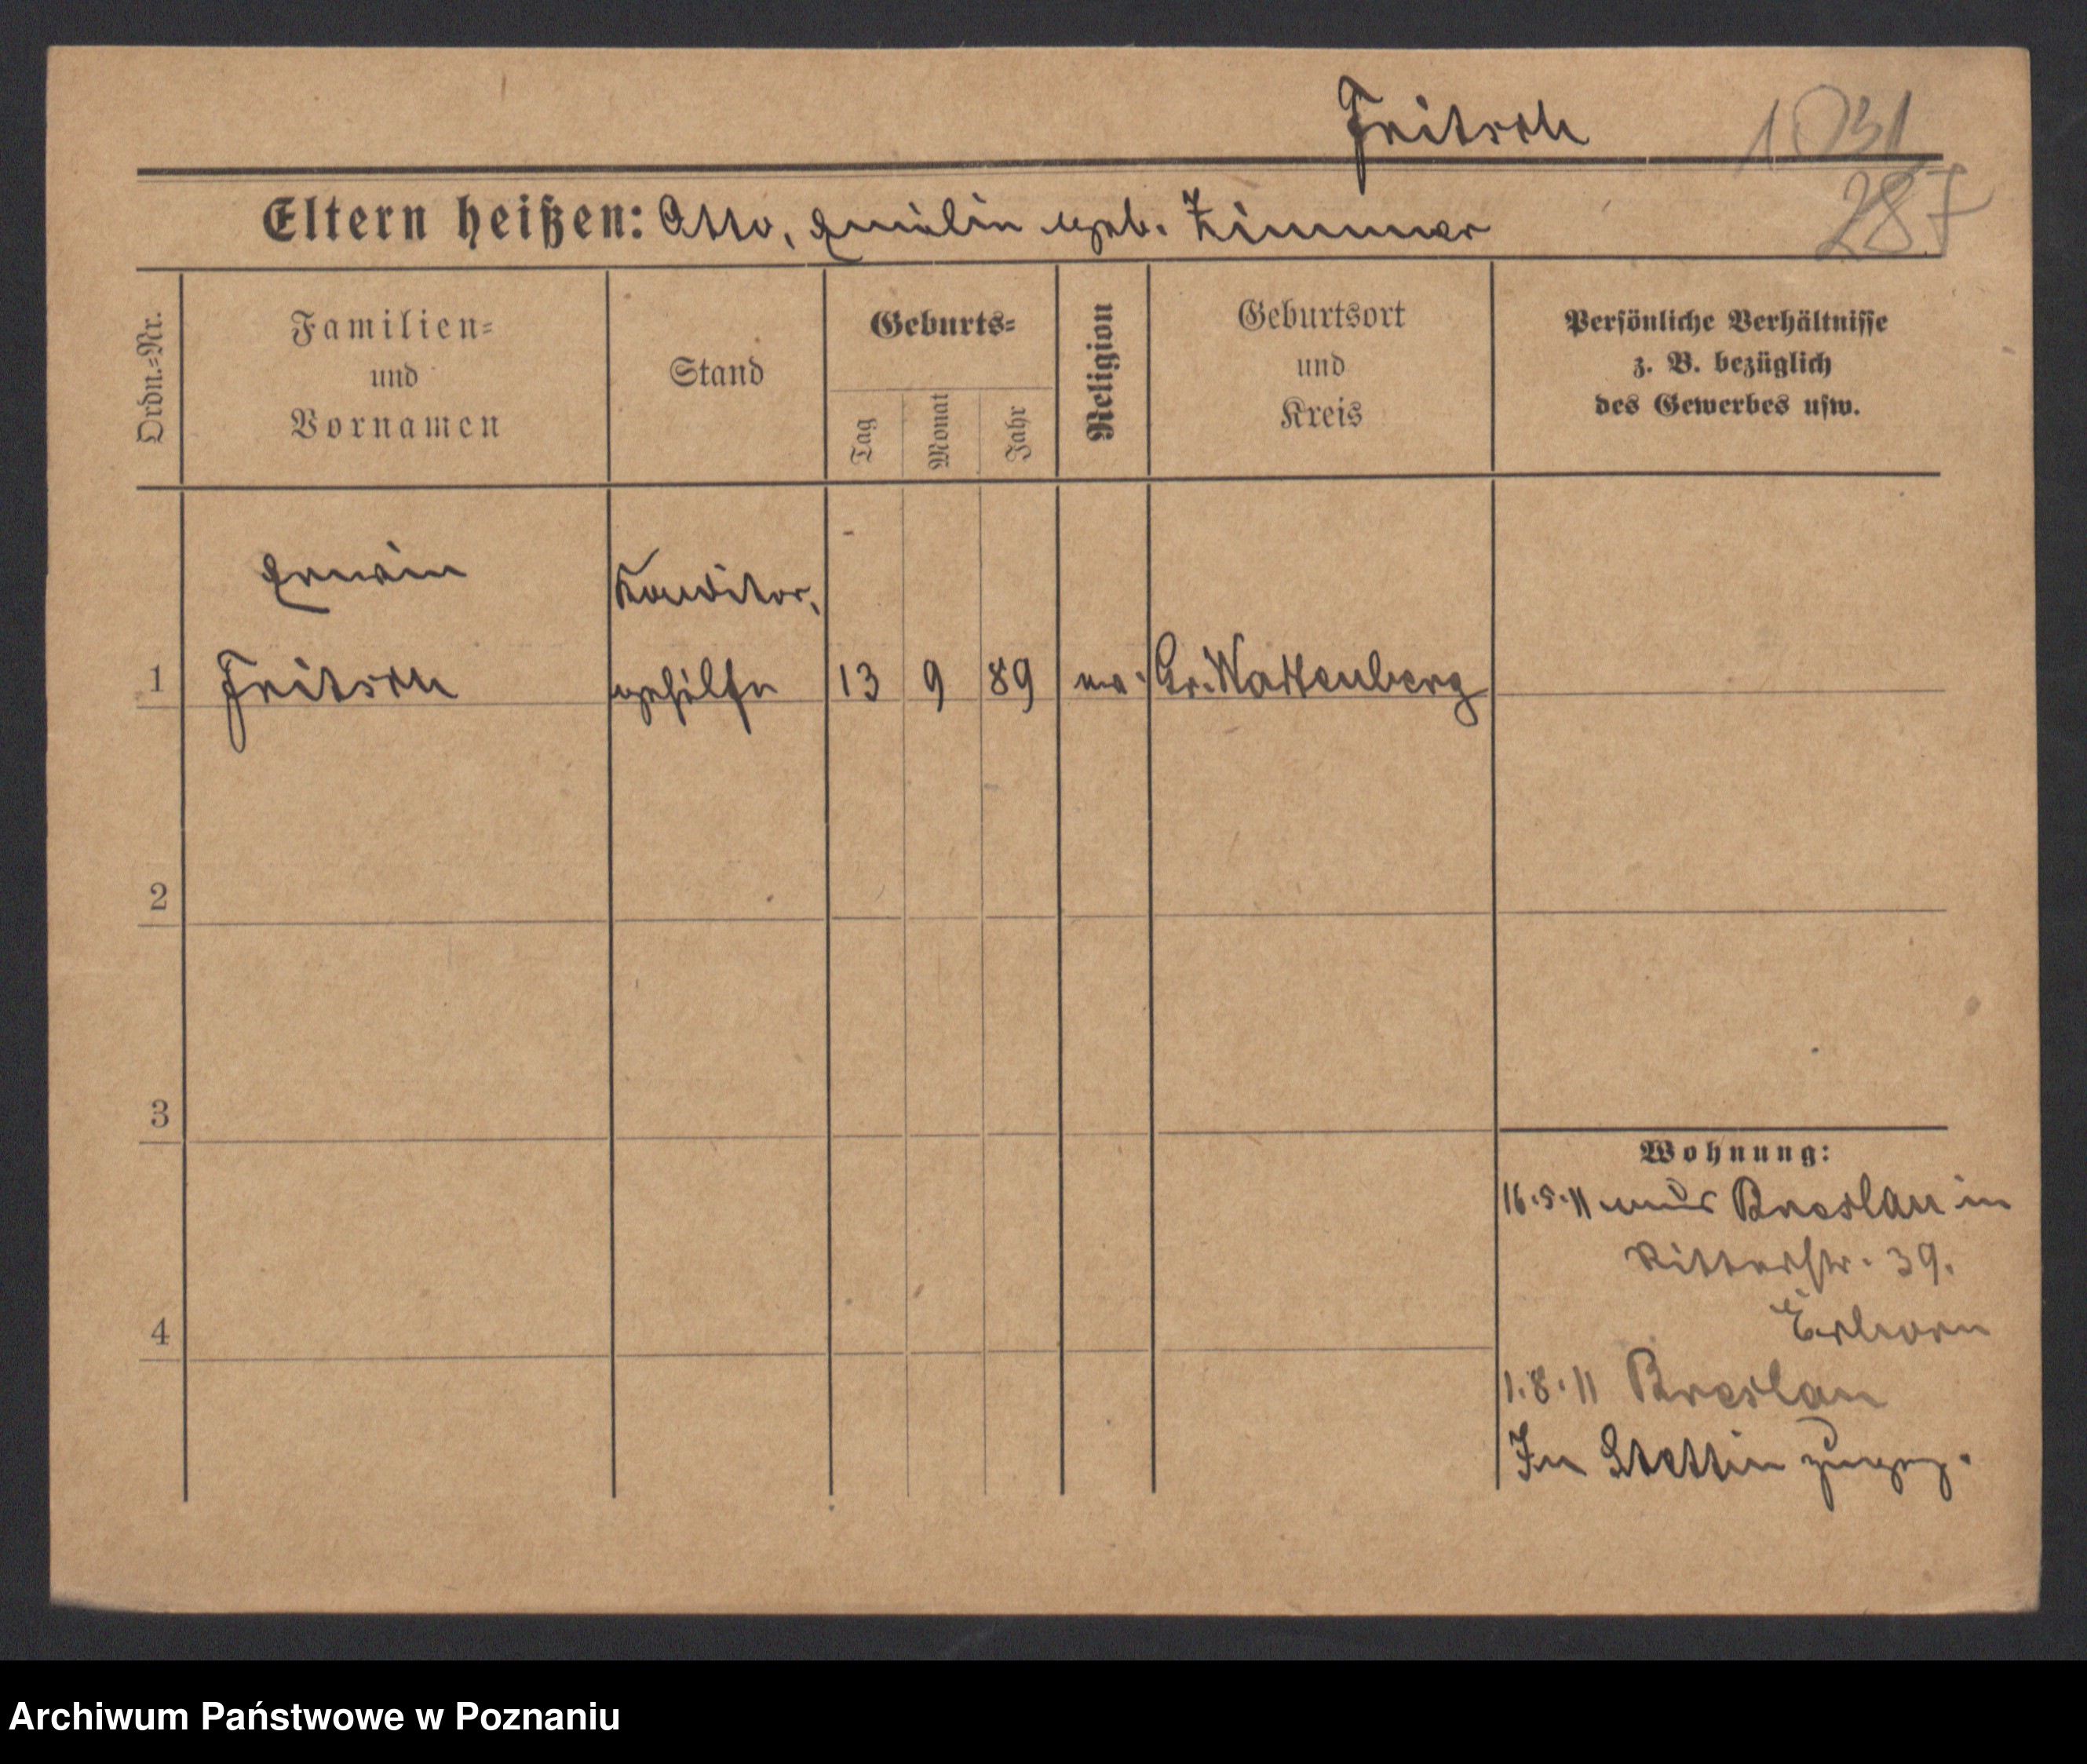 Fritsch
1031
287
Eltern heißen: Otto, Emilie geb. Zimmer
Ordn.=Nr.
Familien=
und
Vornamen
Stand
Geburts=
Tag
Monat
Jahr
Religion
Geburtsort
und
Kreis
Persönliche Verhältnisse
z. B. bezüglich
des Gewerbes usw.
Erwin
Konditor,
1 Fritsch gehilfe 13 9 89 ev. Gr. Wartenberg
2
3
Wohnung:
16.5.11 aus Breslau in
Ritterstr. 39.
4
1.8.11 Breslau
In Stettin zugez.
Archiwum Państwowe w Poznaniu